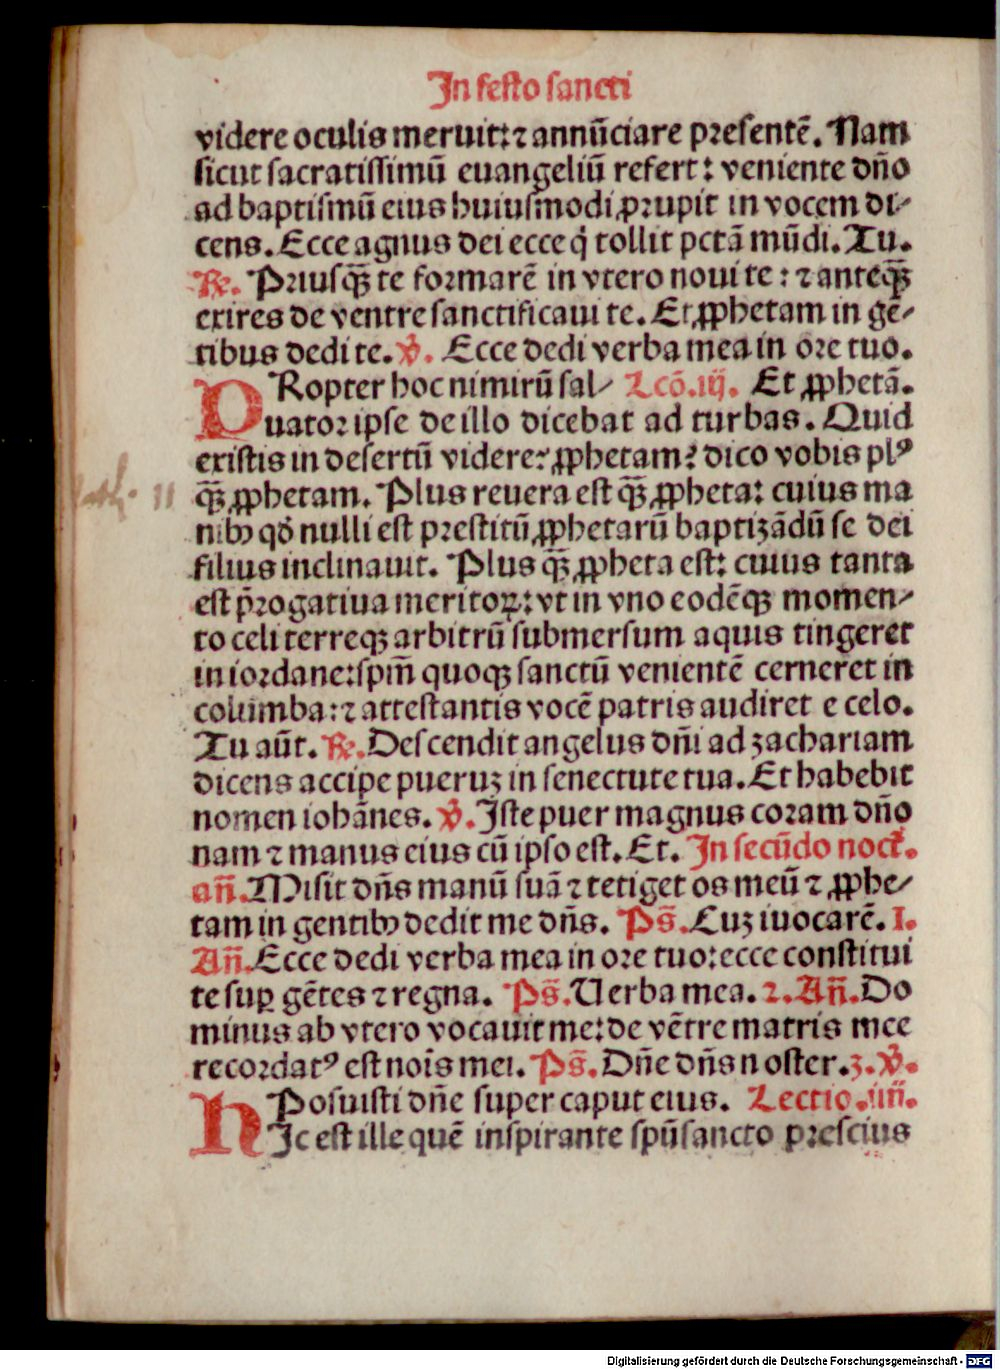 In festo sancti
videre oculis meruit: ⁊ annūciare presentē. Nam
sicut sacratissimū euangeliū refert: veniente dn̄o
ad baptismū eius huiusmodi ꝓrupit in vocem di-
cens. Ecce agnus dei ecce q̇ tollit pctā mūdi. Tu.
℟. Priusqꝫ̄ te formarē in vtero noui te: ⁊ anteqꝫ̄
exires de ventre sanctificaui te. Et ꝓphetam in gē-
tibus dedi te. ℣. Ecce dedi verba mea in ore tuo.
PRopter hoc nimirū sal- Lcō.iij. Et ꝓphetā.
uator ipse de illo dicebat ad turbas. Quid
existis in desertū videre? ꝓphetam? dico vobis plꝰ
qꝫ̄ ꝓphetam. Plus reuera est qꝫ̄ ꝓpheta: cuius ma
Math. 11
nibꝫ qđ nulli est prestitū ꝓphetarū baptizādū se dei
filius inclinauit. Plus qꝫ̄ ꝓpheta est: cuius tanta
est p̄rogatiua meritoꝝ: vt in vno eodēqꝫ momen-
to celi terreqꝫ arbitrū submersum aquis tingeret
in iordane: spm̄ quoqꝫ sanctū venientē cerneret in
columba: ⁊ attestantis vocē patris audiret e celo.
Tu aūt. ℟. Descendit angelus dn̄i ad zachariam
dicens accipe pueruꝫ in senectute tua. Et habebit
nomen iohānes. ℣. Iste puer magnus coram dn̄o
nam ⁊ manus eius cū ipso est. Et. In secūdo noct.
an̄. Misit dn̄s manū suā ⁊ tetiget os meū ⁊ ꝓphe-
tam in gentibꝫ dedit me dn̄s. Ps̄. Cuꝫ iuocarē. 1.
An̄. Ecce dedi verba mea in ore tuo: ecce constitui
te suꝑ gētes ⁊ regna. Ps̄. Uerba mea. 2. An̄. Do
minus ab vtero vocauit me: de vētre matris mee
recordatꝰ est nois̄ mei. Ps̄. Dn̄e dn̄s noster. 3. ℣.
Posuisti dn̄e super caput eius. Lectio.iiij.
HIc est ille quē inspirante spūsancto prescius
Digitalisierung gefördert durch die Deutsche Forschungsgemeinschaft - DFG